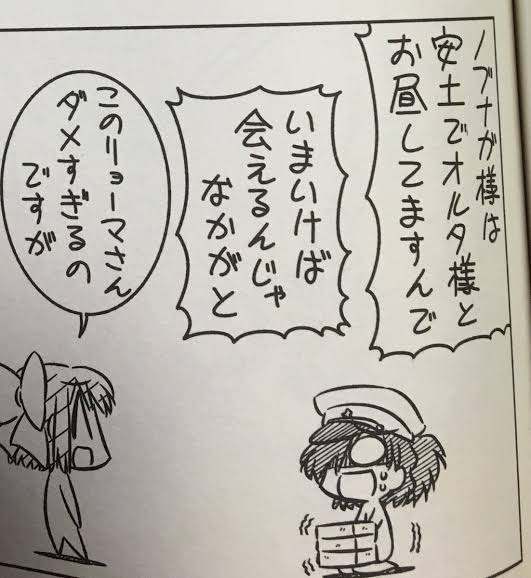 ノブナガ様は
安土でオルタ様と
お昼してますんで
いまいけば
会えるんじゃ
なかがと
このリョーマさん
ダメすぎるの
ですが